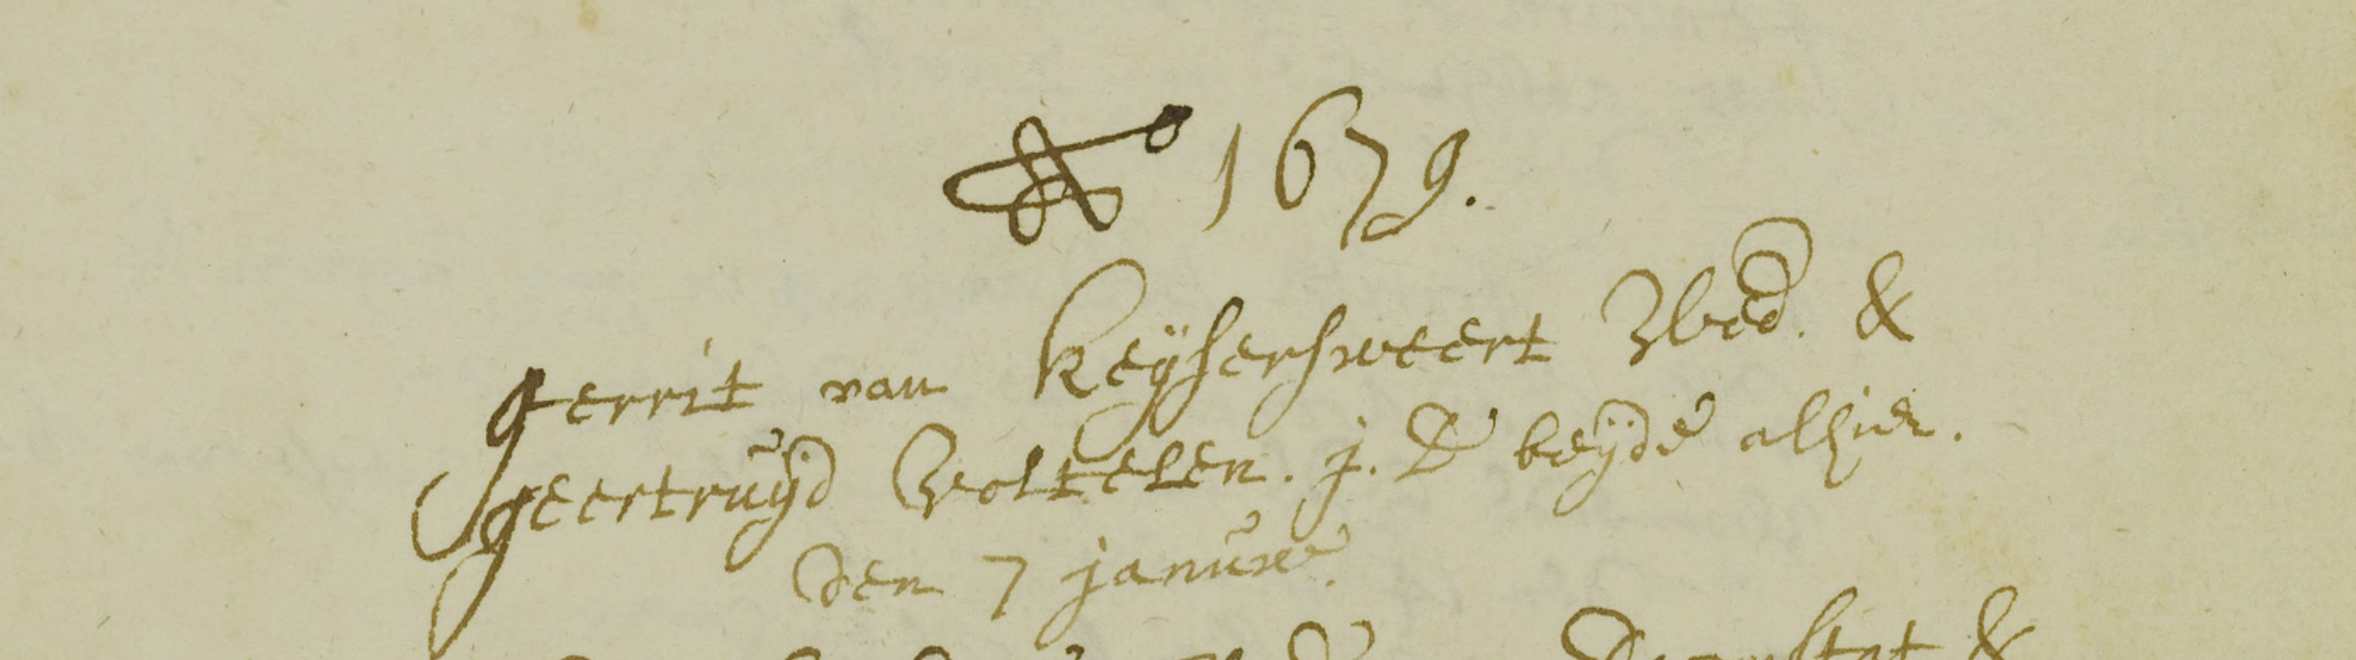 Ao 1679.
Gerrit van Keÿsersweert Wed. &
Geertruÿd Woltelen. j. D beÿde alhier.
den 7 januw.
&